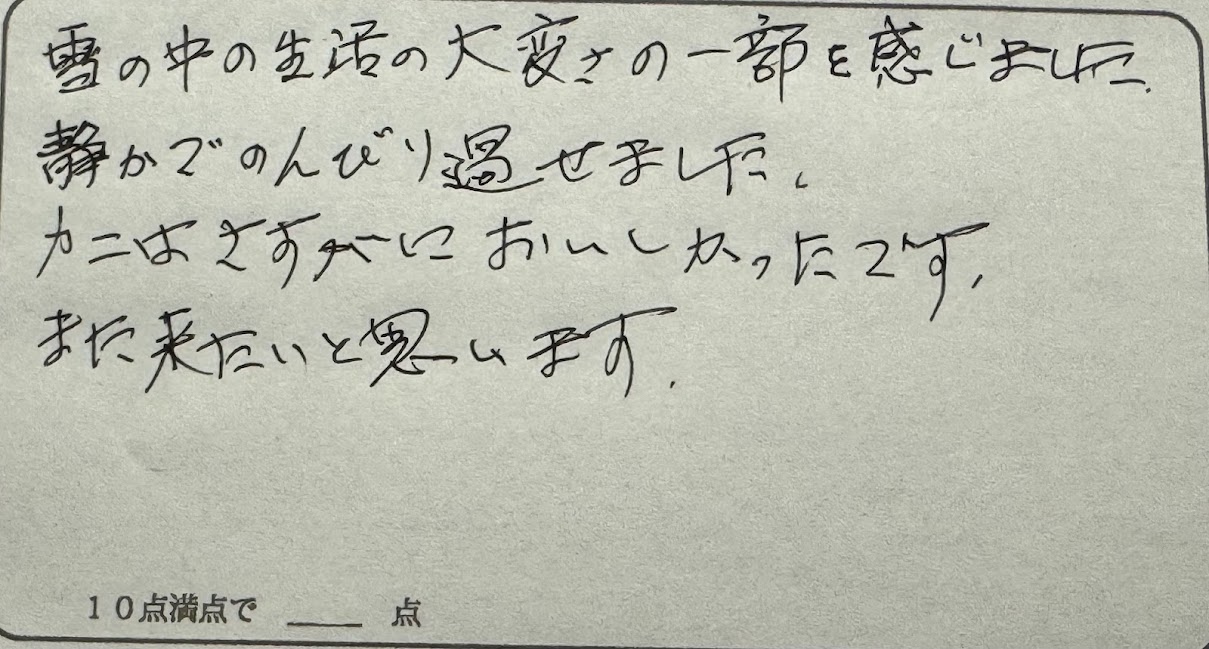 雪の中の生活の大変さの一部を感じました.
静かでのんびり過せました.
カニはさすがにおいしかったです.
また来たいと思います.
10点満点で ____ 点